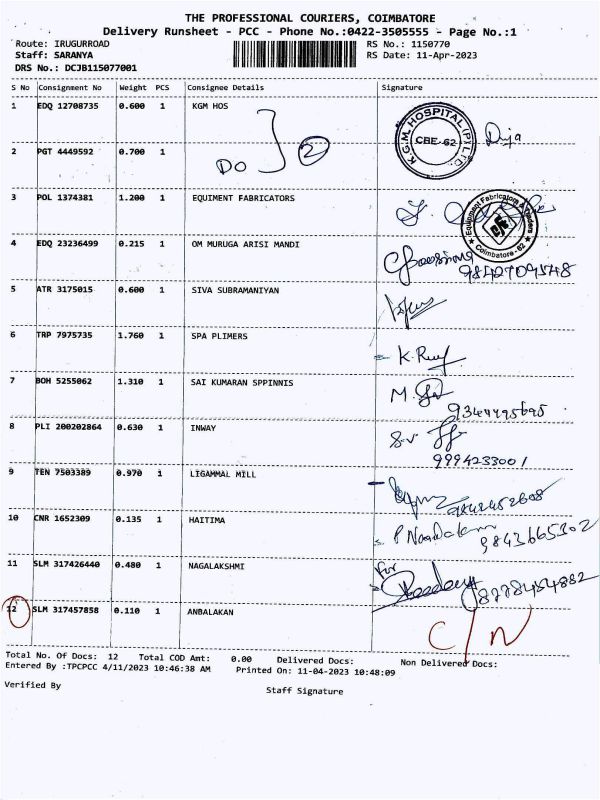 THE PROFESSIONAL COURIERS, COIMBATORE
Delivery Runsheet - PCC - Phone No.:0422-3505555 - Page No.:1
Route: IRUGURROAD RS No.: 1150770
Staff: SARANYA RS Date: 11-Apr-2023
DRS No.: DCJB115077001
S No Consignment No Weight PCS Consignee Details Signature
1 EDQ 12708735 0.600 1 KGM HOS
K.G.M. HOSPITAL (P) LTD. CBE-62
2 PGT 4449592 0.700 1 DO 2
3 POL 1374381 1.200 1 EQUIMENT FABRICATORS
Equipment Fabricators & Traders Coimbatore - 62
4 EDQ 23236499 0.215 1 OM MURUGA ARISI MANDI
9842709548
5 ATR 3175015 0.600 1 SIVA SUBRAMANIYAN
6 TRP 7975735 1.760 1 SPA PLIMERS
7 BOH 5255062 1.310 1 SAI KUMARAN SPPINNIS M.
9344495695
8 PLI 200202864 0.630 1 INWAY
9994233001
9 TEN 7503389 0.970 1 LIGAMMAL MILL
9842452608
10 CNR 1652309 0.135 1 HAITIMA
9843665302
11 SLM 317426440 0.480 1 NAGALAKSHMI For
8778454882
12 SLM 317457858 0.110 1 ANBALAKAN
C/N
Total No. Of Docs: 12 Total COD Amt: 0.00 Delivered Docs: Non Delivered Docs:
Entered By :TPCPCC 4/11/2023 10:46:38 AM Printed On: 11-04-2023 10:48:09
Verified By Staff Signature